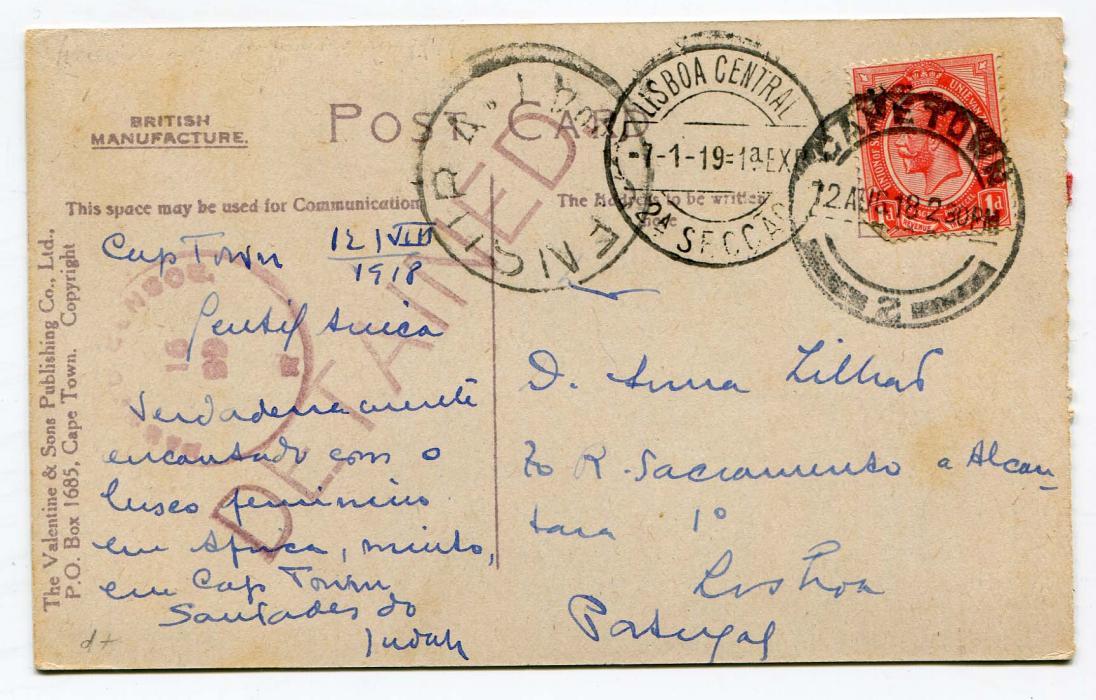 BRITISH
MANUFACTURE.
POST CARD
This space may be used for Communication
The Address to be written
here
The Valentine & Sons Publishing Co., Ltd.,
P.O. Box 1685, Cape Town. Copyright
CENSURA
LISBOA CENTRAL
7-1-19=1ªEXP
2ª SECCAO
CAPE TOWN
12 AUG 18 2 30PM
2
UNION OF SOUTH
1d
DETAINED
CENSOR
Cap Town 12/VIII
1918
Gentil Amiga
Verdadeiramente
encantado com o
luso feminino
em Africa, minto,
em Cap Town
Saudades do
Judah
D. Anna
70 R. Sacramento a Alcan-
tara 1º
Lisboa
Portugal